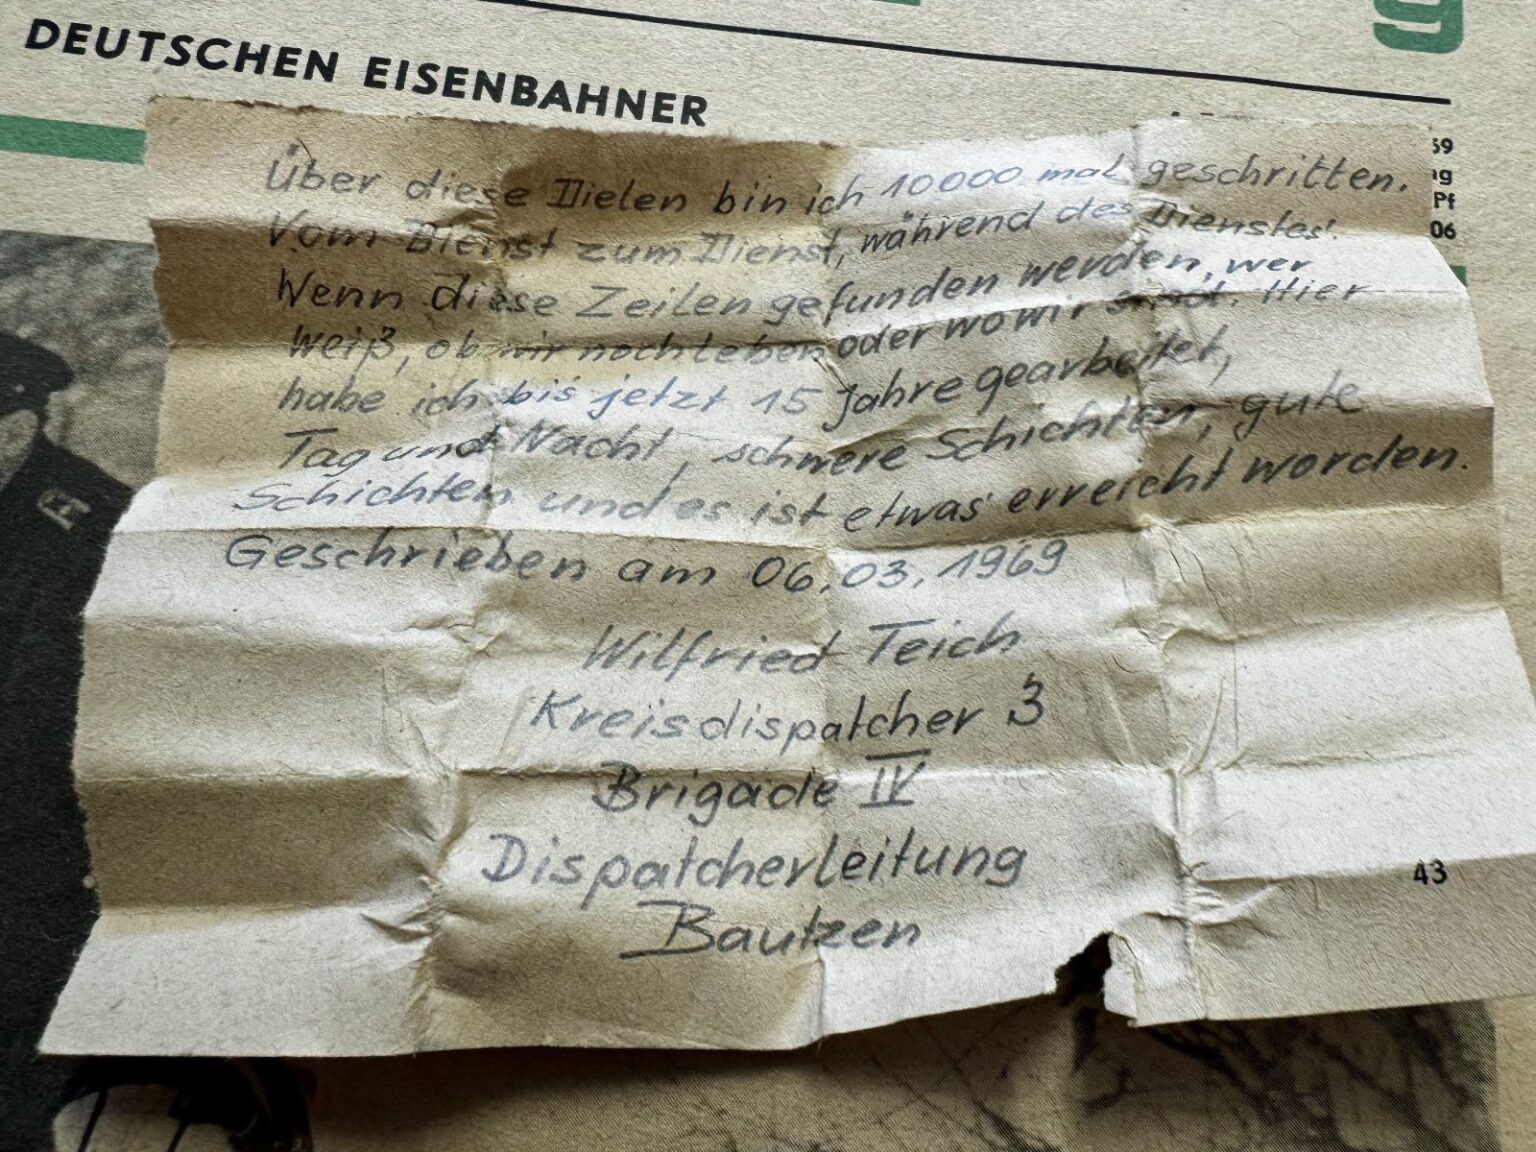 g
DEUTSCHEN EISENBAHNER
69
Pf
06
Über diese Dielen bin ich 10000 mal geschritten.
Vom Dienst zum Dienst, während des Dienstes.
Wenn diese Zeilen gefunden werden, wer
weiß, ob wir noch leben oder wo wir sind. Hier
habe ich bis jetzt 15 Jahre gearbeitet,
Tag und Nacht, schwere Schichten, gute
Schichten und es ist etwas erreicht worden.
Geschrieben am 06.03.1969
Wilfried Teich
Kreisdispatcher 3
Brigade IV
Dispatcherleitung
Bautzen
43